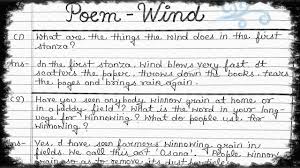 Poem - Wind
Q1) What are the things the wind does in the first
stanza?
Ans- In the first stanza, Wind blows very fast. It
scatters the paper, throws down the books, tears
the pages and brings rain again.
Q2) Have you seen anybody winnow grain at home or
in a paddy field? What is the word in your lang-
uage for winnowing? What do people use for
winnowing?
Ans- Yes, I have seen farmers winnowing grain in
fields. We call this act 'Osana'. People winnow
grain so as to remove its dust